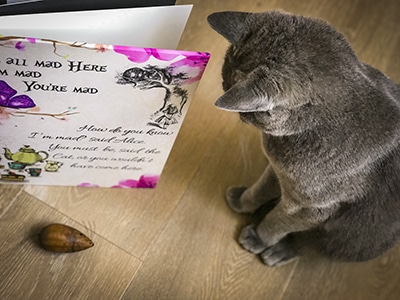 all mad Here
I'm mad
You're mad
How do you know
I'm mad? said Alice.
You must be, said the
Cat, or you wouldn't
have come here.